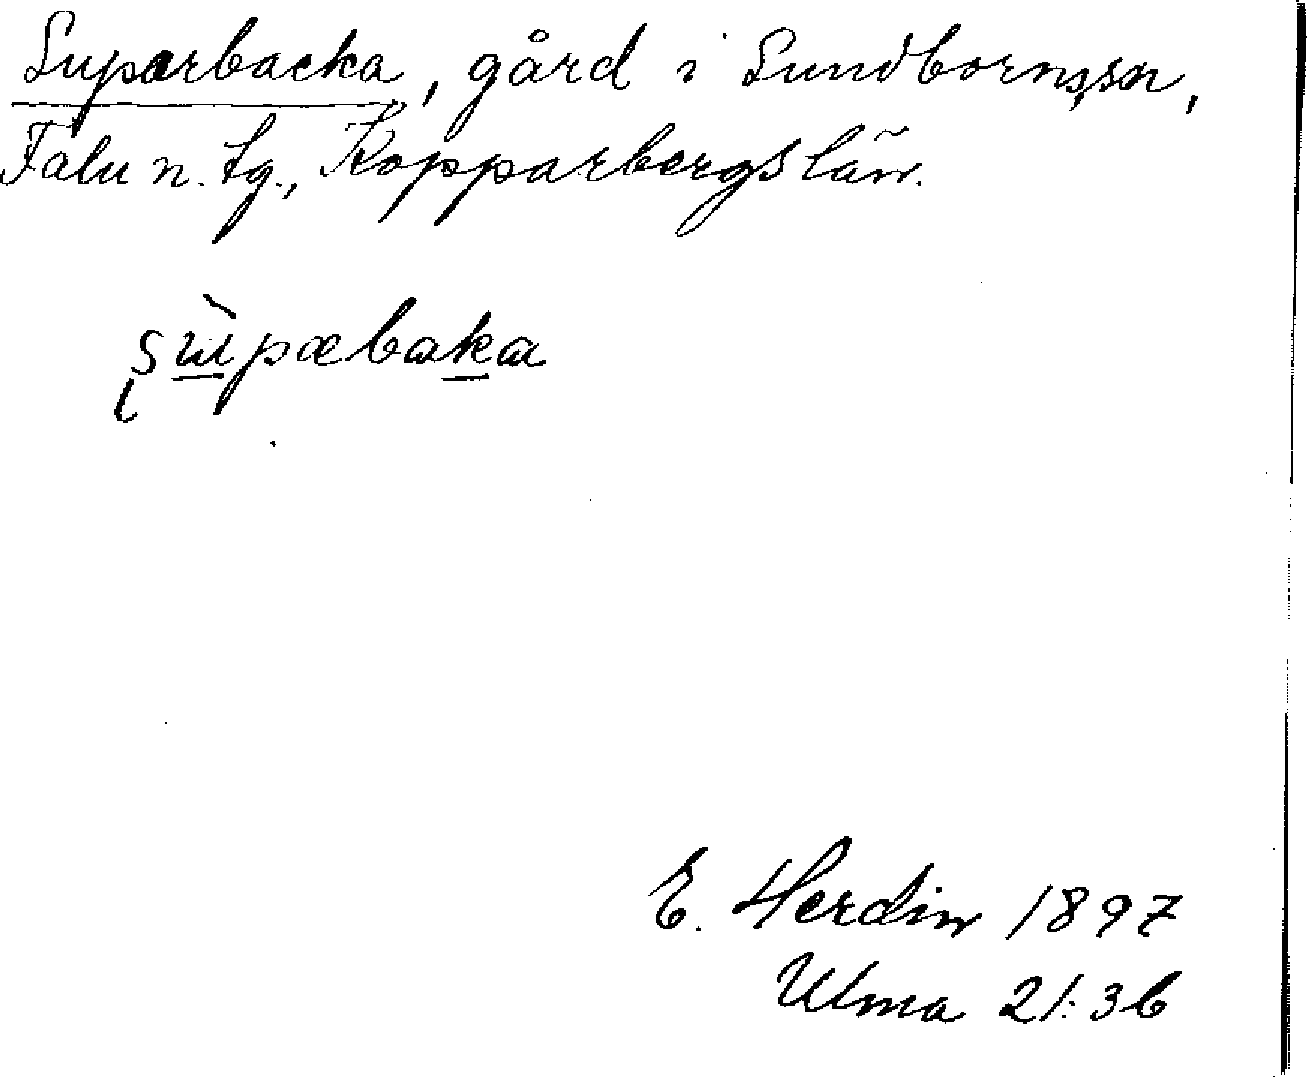 Suparbacka, gård i Sundborns sn,
Falu n. tg., Kopparbergs län.
sɯ̀pæbaka
E. Herdin 1897
Ulma 21:3b